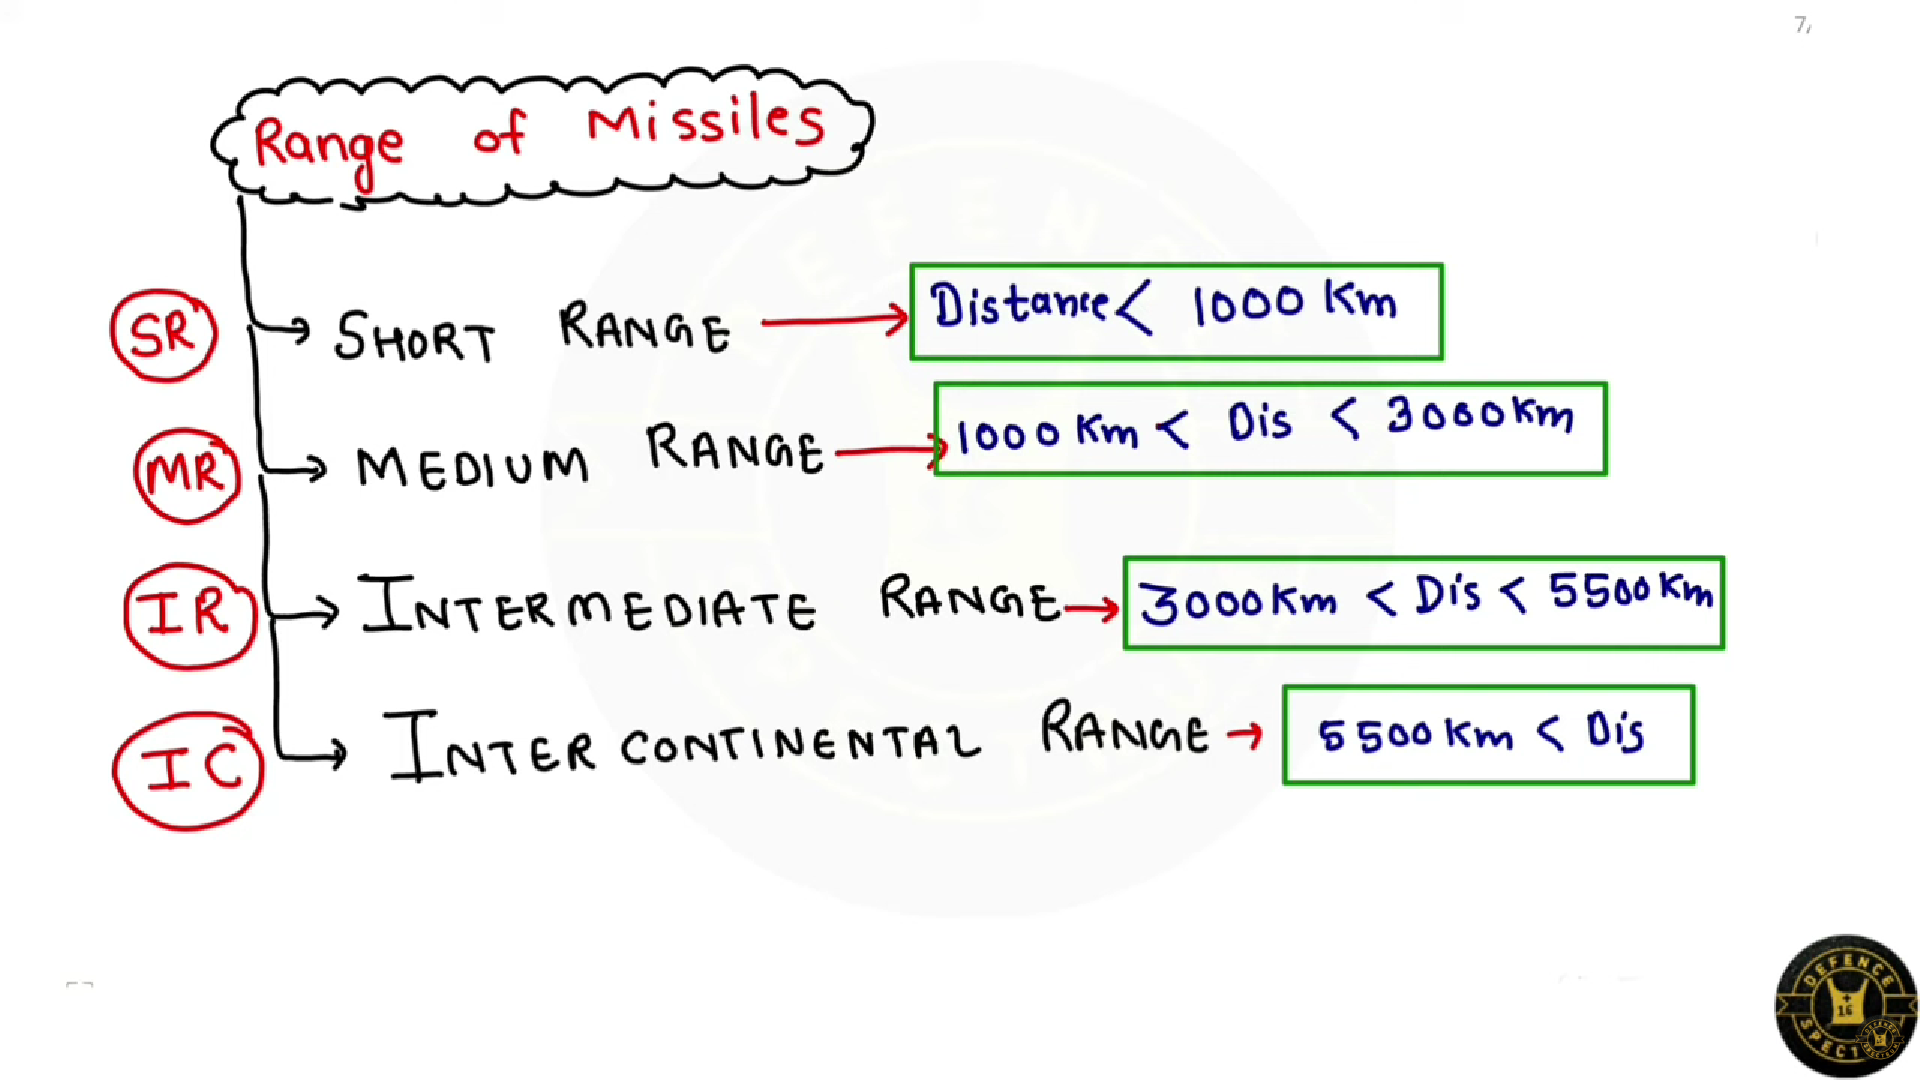 7/
Range of Missiles
SR SHORT RANGE Distance < 1000 Km
MR MEDIUM RANGE 1000 Km < Dis < 3000 Km
IR INTERMEDIATE RANGE 3000 Km < Dis < 5500 Km
IC INTER CONTINENTAL RANGE 5500 Km < Dis
DEFENCE
16